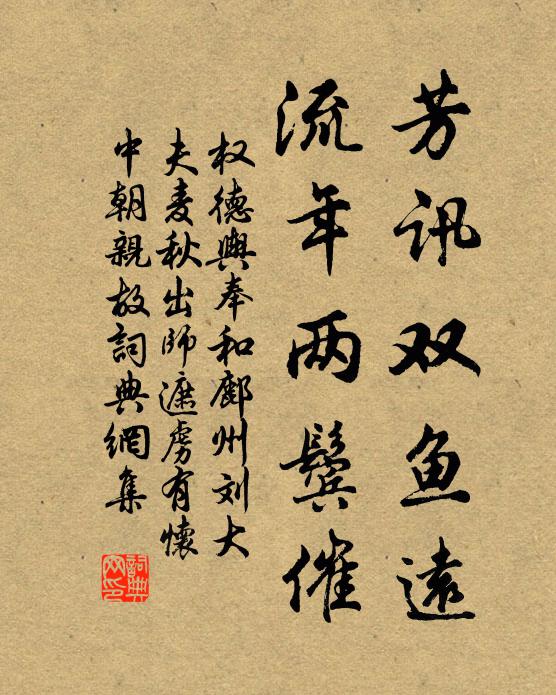 芳讯双鱼远
流年两鬓催
权德舆奉和鄜州刘大
夫麦秋出师遮虏有怀
中朝親故詞典網集
詞典
网印